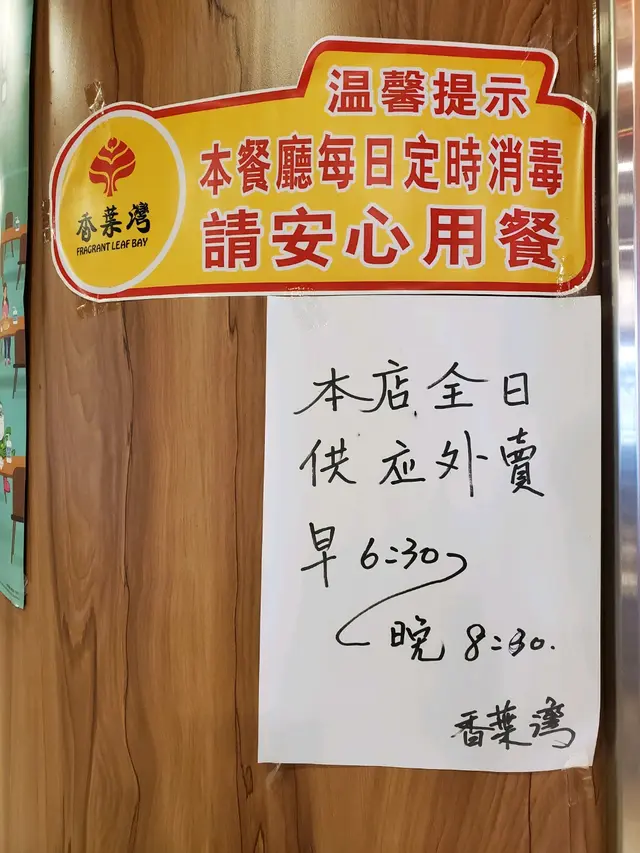 溫馨提示
本餐廳每日定時消毒
請安心用餐
香葉灣
FRAGRANT LEAF BAY
本店全日
供应外賣
早 6:30
晚 8:30.
香葉灣